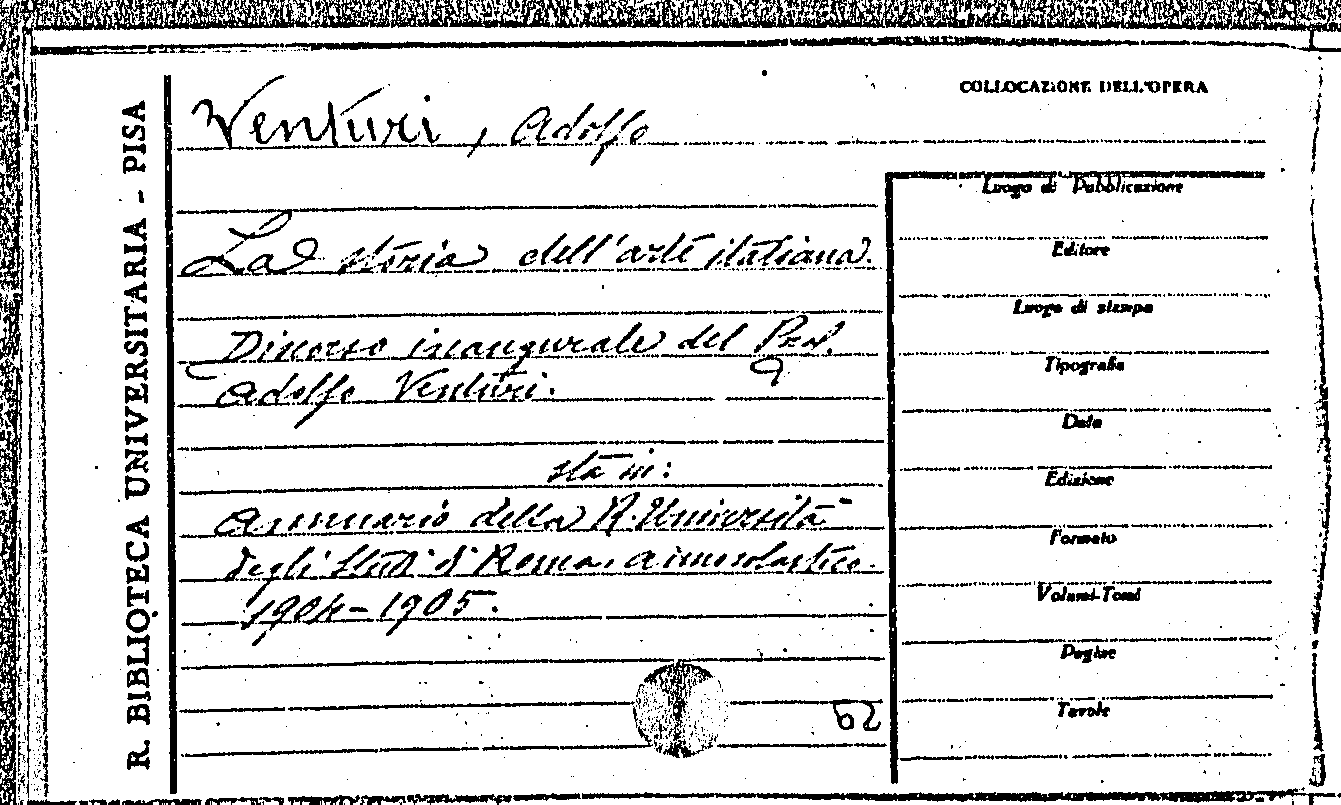 R. BIBLIOTECA UNIVERSITARIA - PISA
Venturi, Adolfo
La storia dell'arte italiana.
Discorso inaugurale del Prof.
Adolfo Venturi.
sta in:
Annuario della R. Università
degli Studi di Roma. anno scolastico.
1904-1905.
62
COLLOCAZIONE DELL'OPERA
Luogo di Pubblicazione
Editore
Luogo di stampa
Tipografia
Data
Edizione
Formato
Volumi-Tomi
Pagine
Tavole